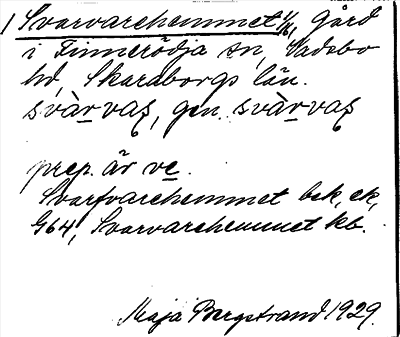 1 Svarvarehemmet 1/16, Gård
i Finnerödja sn, Vadsbo
hd, Skaraborgs län.
svàrvaʃ, gen. svàrvaʃ
prep. är ve.
Svarfvarehemmet bek, ek,
G64, Svarvarehemmet kb.
Maja Bergstrand 1929.